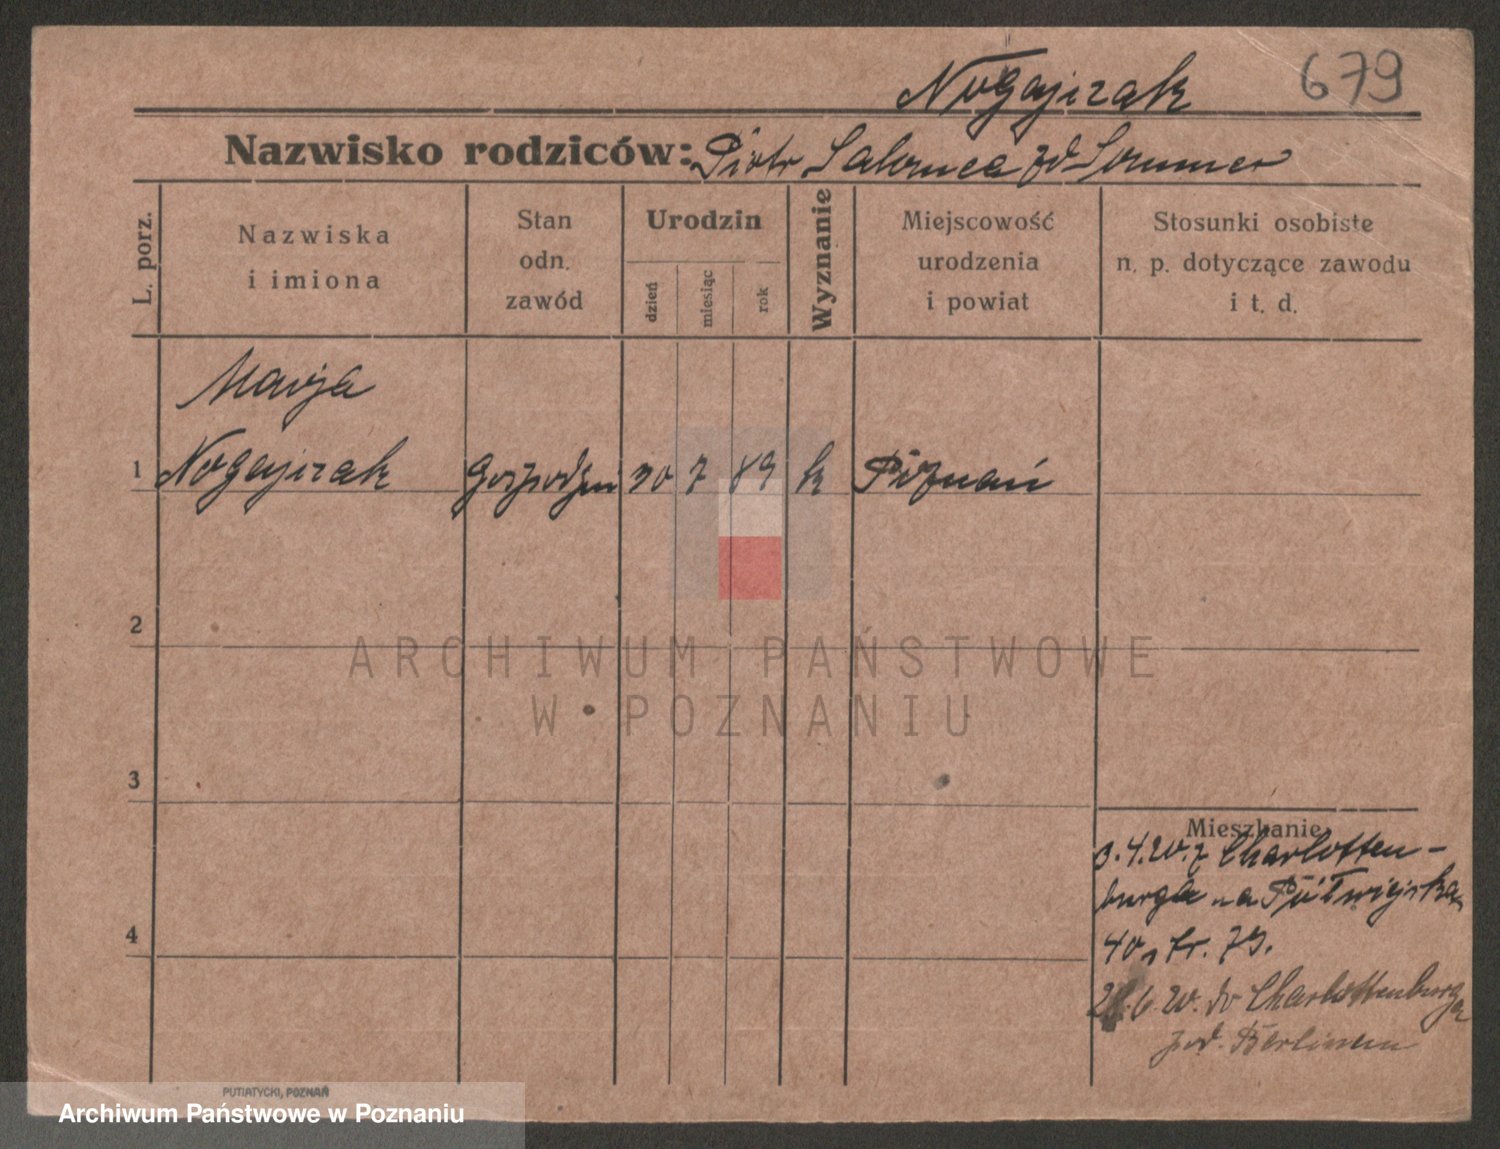 Nogajczak 679
Nazwisko rodziców: Piotr Salomea zd Sommer
L. porz.
Nazwiska
i imiona
Stan
odn.
zawód
Urodzin
dzień
miesiąc
rok
Wyznanie
Miejscowość
urodzenia
i powiat
Stosunki osobiste
n. p. dotyczące zawodu
i t. d.
Marja
1 Nogajczak Gospodyni 7 89 k Poznań
2
ARCHIWUM PAŃSTWOWE
W POZNANIU
3
Mieszkanie
3.4.20. z Charlotten-
burga na Półwiejska
40, tr. 79.
6.20. do Charlottenburga
pod. Berlinem
4
PUTIATYCKI, POZNAŃ
Archiwum Państwowe w Poznaniu